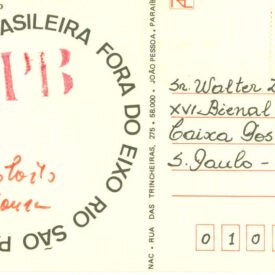 ASILEIRA FORA DO EIXO RIO SÃO P
PB
NAC - RUA DAS TRINCHEIRAS, 275 - 58.000 - JOÃO PESSOA, PARAÍB
Sr. Walter
XVI Bienal
Caixa Pos
S. Paulo -
0 1 0